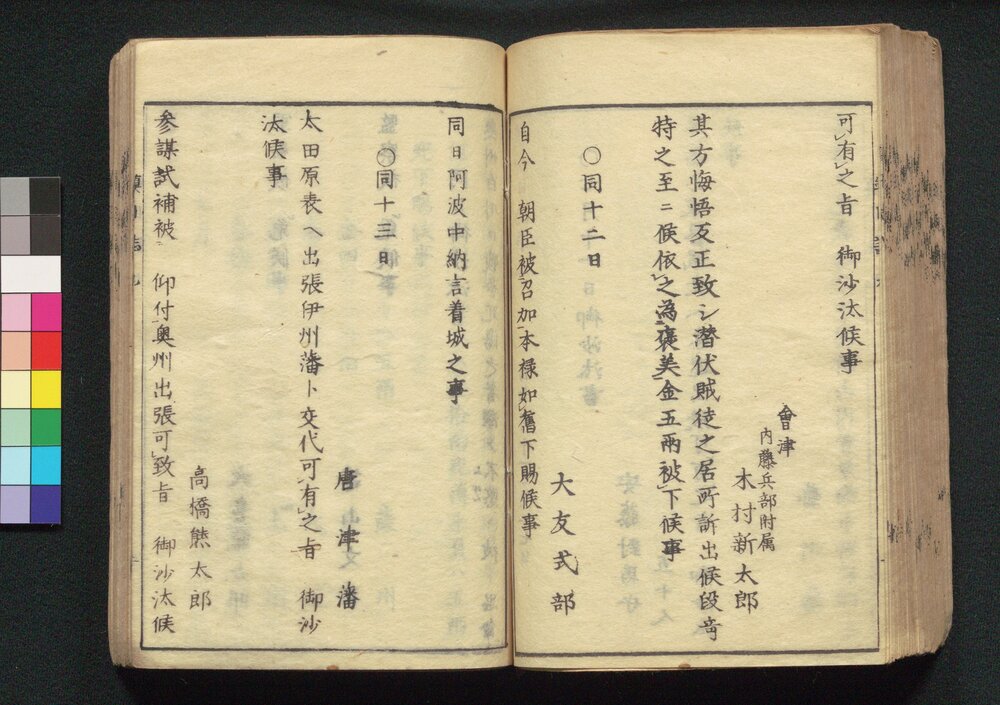 可有之旨　御沙汰候事
會津
内藤兵部附属
木村新太郎
其方悔悟反正致シ潜伏賊徒之居所訴出候段奇
特之至ニ候依之為褒美金五兩被下候事
○同十二日
大友式部
自今　朝臣被召加本禄如舊下賜候事
同日阿波中納言着城之事
○同十三日
唐津藩
太田原表ヘ出張伊州藩ト交代可有之旨　御沙
汰候事
高橋熊太郎
参謀試補被　仰付奥州出張可致旨　御沙汰候